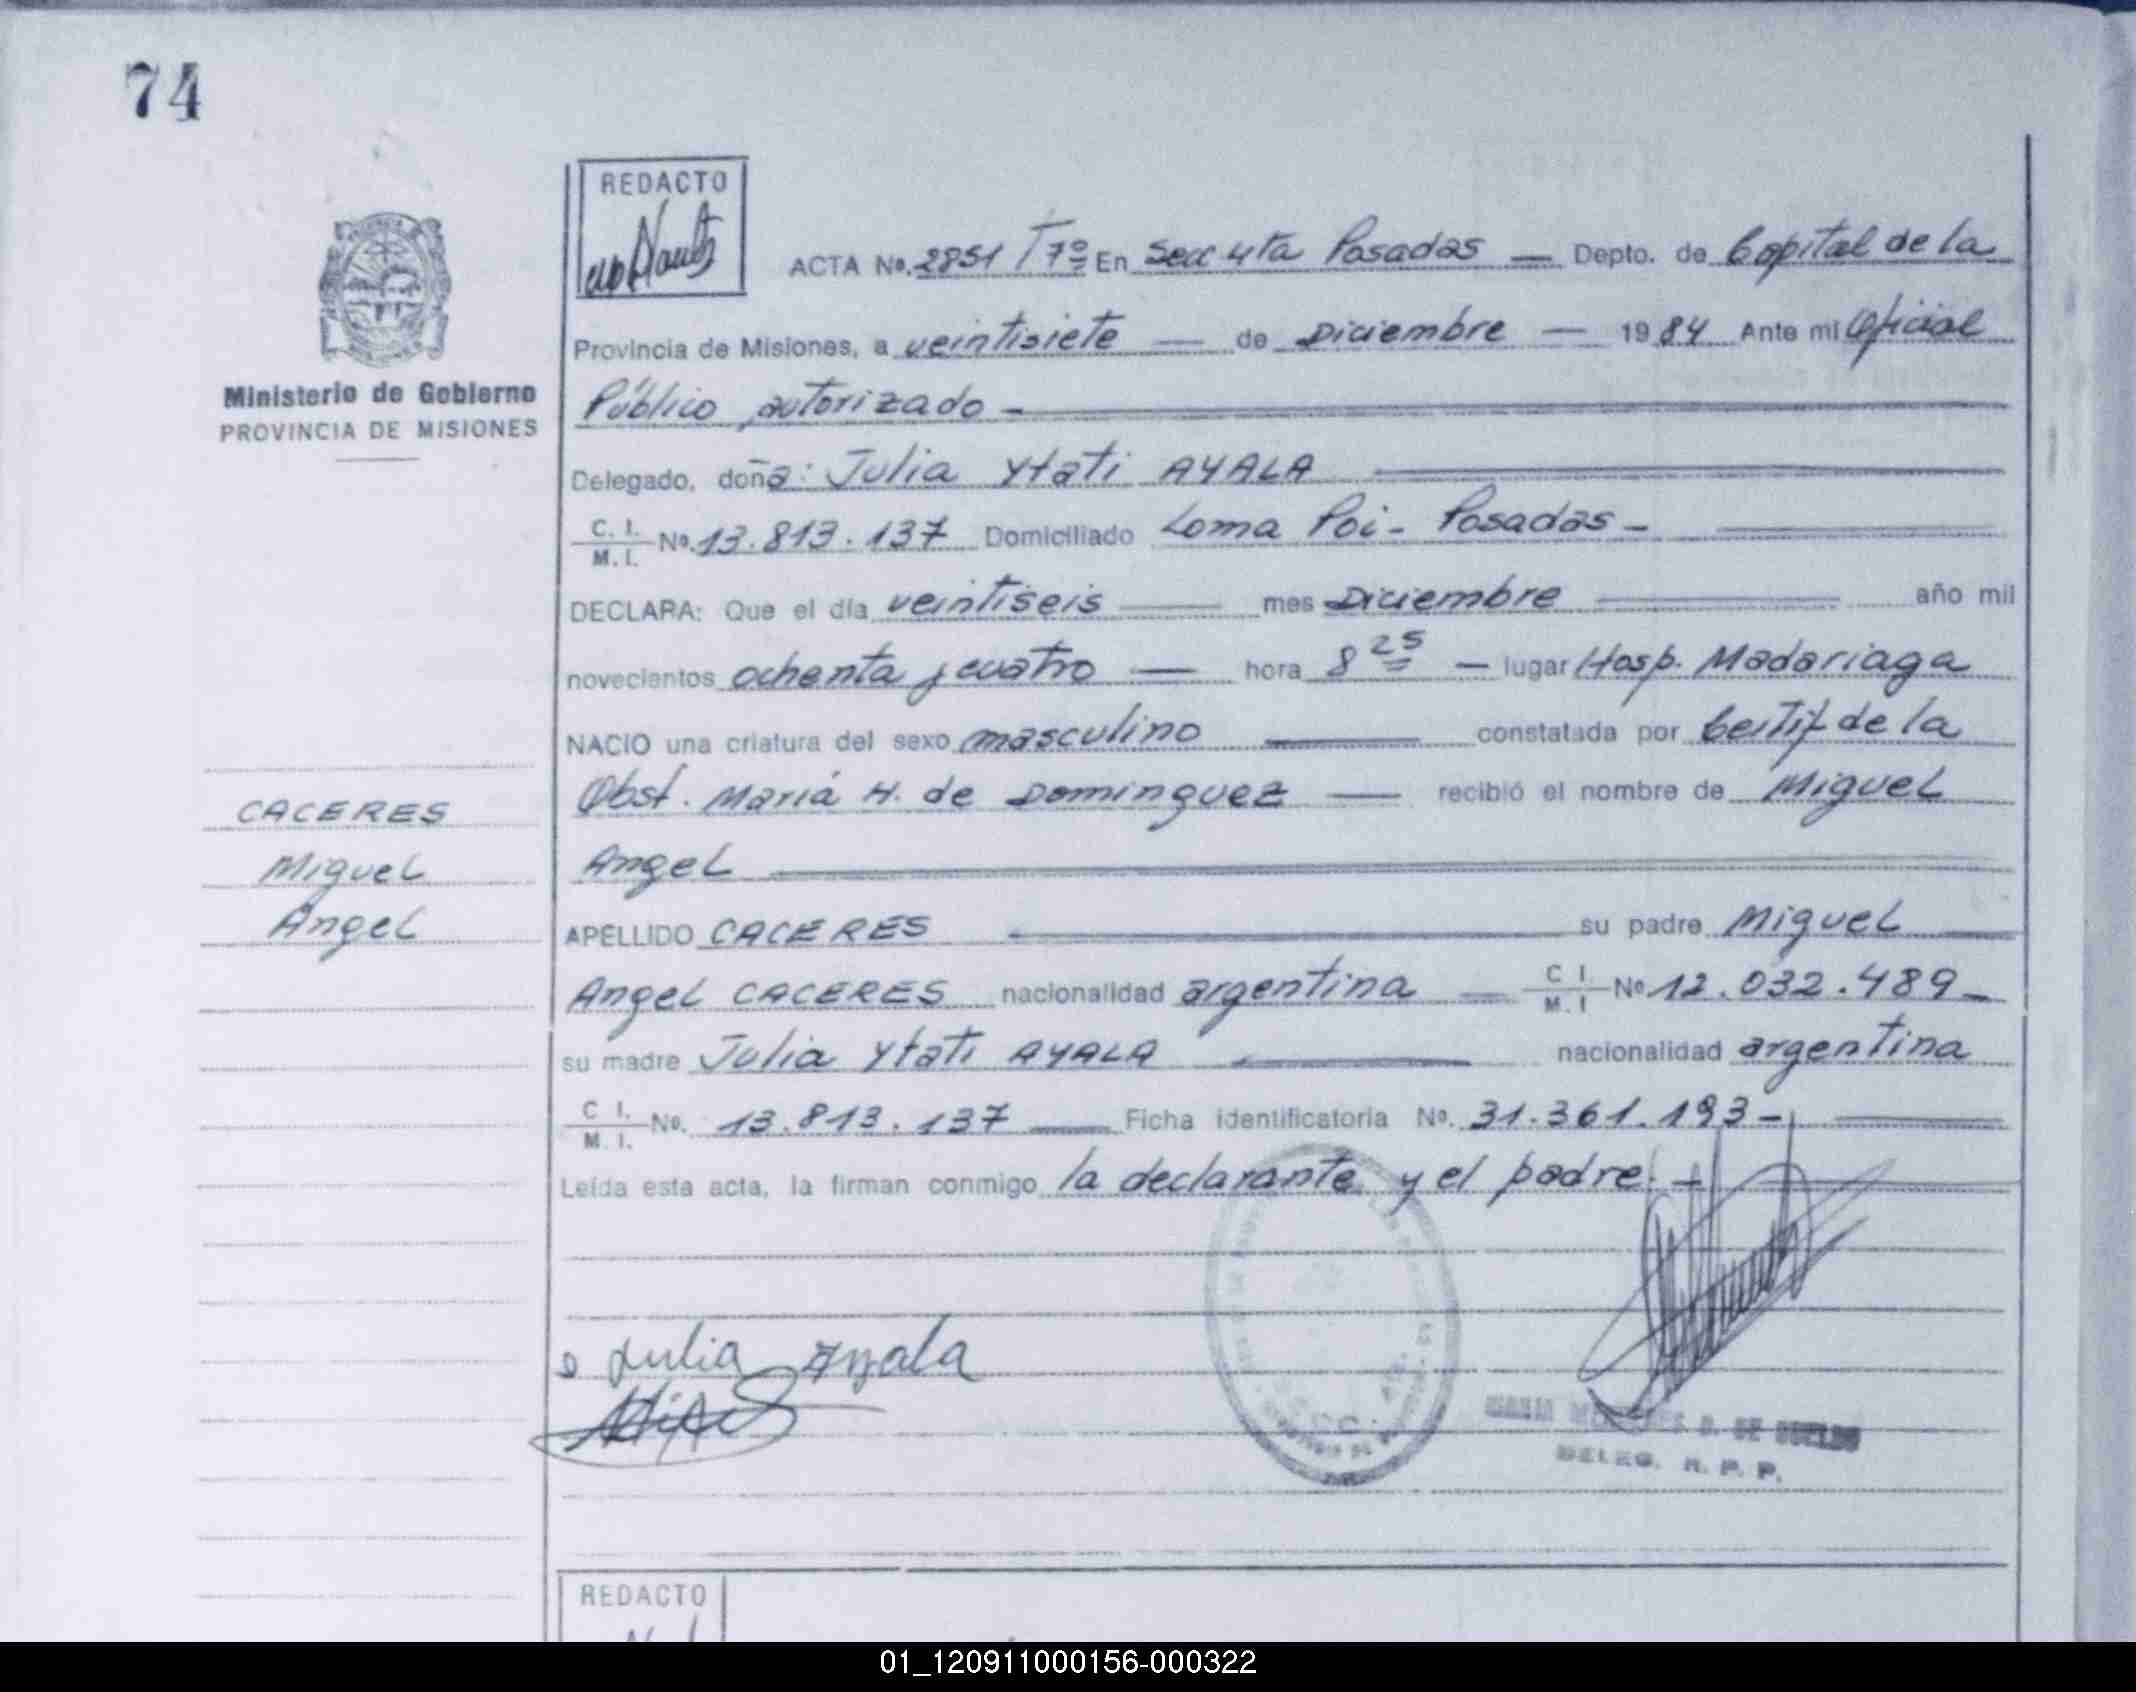 74
REDACTO
ACTA No. 2851 T 7º En Secc 4ta Posadas — Depto. de Capital de la
Provincia de Misiones, a veintisiete — de Diciembre — 1984 Ante mi Oficial
Ministerio de Gobierno
PROVINCIA DE MISIONES
Público autorizado -
Delegado, doña: Julia Ytati AYALA
C. I. / M. I. No. 13.813.137 Domiciliado Loma Poi - Posadas -
DECLARA: Que el día veintiseis mes Diciembre año mil
novecientos ochenta y cuatro — hora 8 25 — lugar Hosp. Madariaga
NACIO una criatura del sexo masculino constatada por Certif de la
Obst. María H. de Dominguez — recibió el nombre de Miguel
Angel
CACERES
Miguel
Angel
APELLIDO CACERES su padre Miguel
Angel CACERES nacionalidad argentina — C I. / M. I No 12.032.489 -
su madre Julia Ytati AYALA nacionalidad argentina
C I. / M. I. No. 13.813.137 Ficha identificatoria No. 31.361.193 -
Leída esta acta, la firman conmigo la declarante y el padre. -
Julia Ayala
DELEG. R. P. P.
REDACTO
01_120911000156-000322